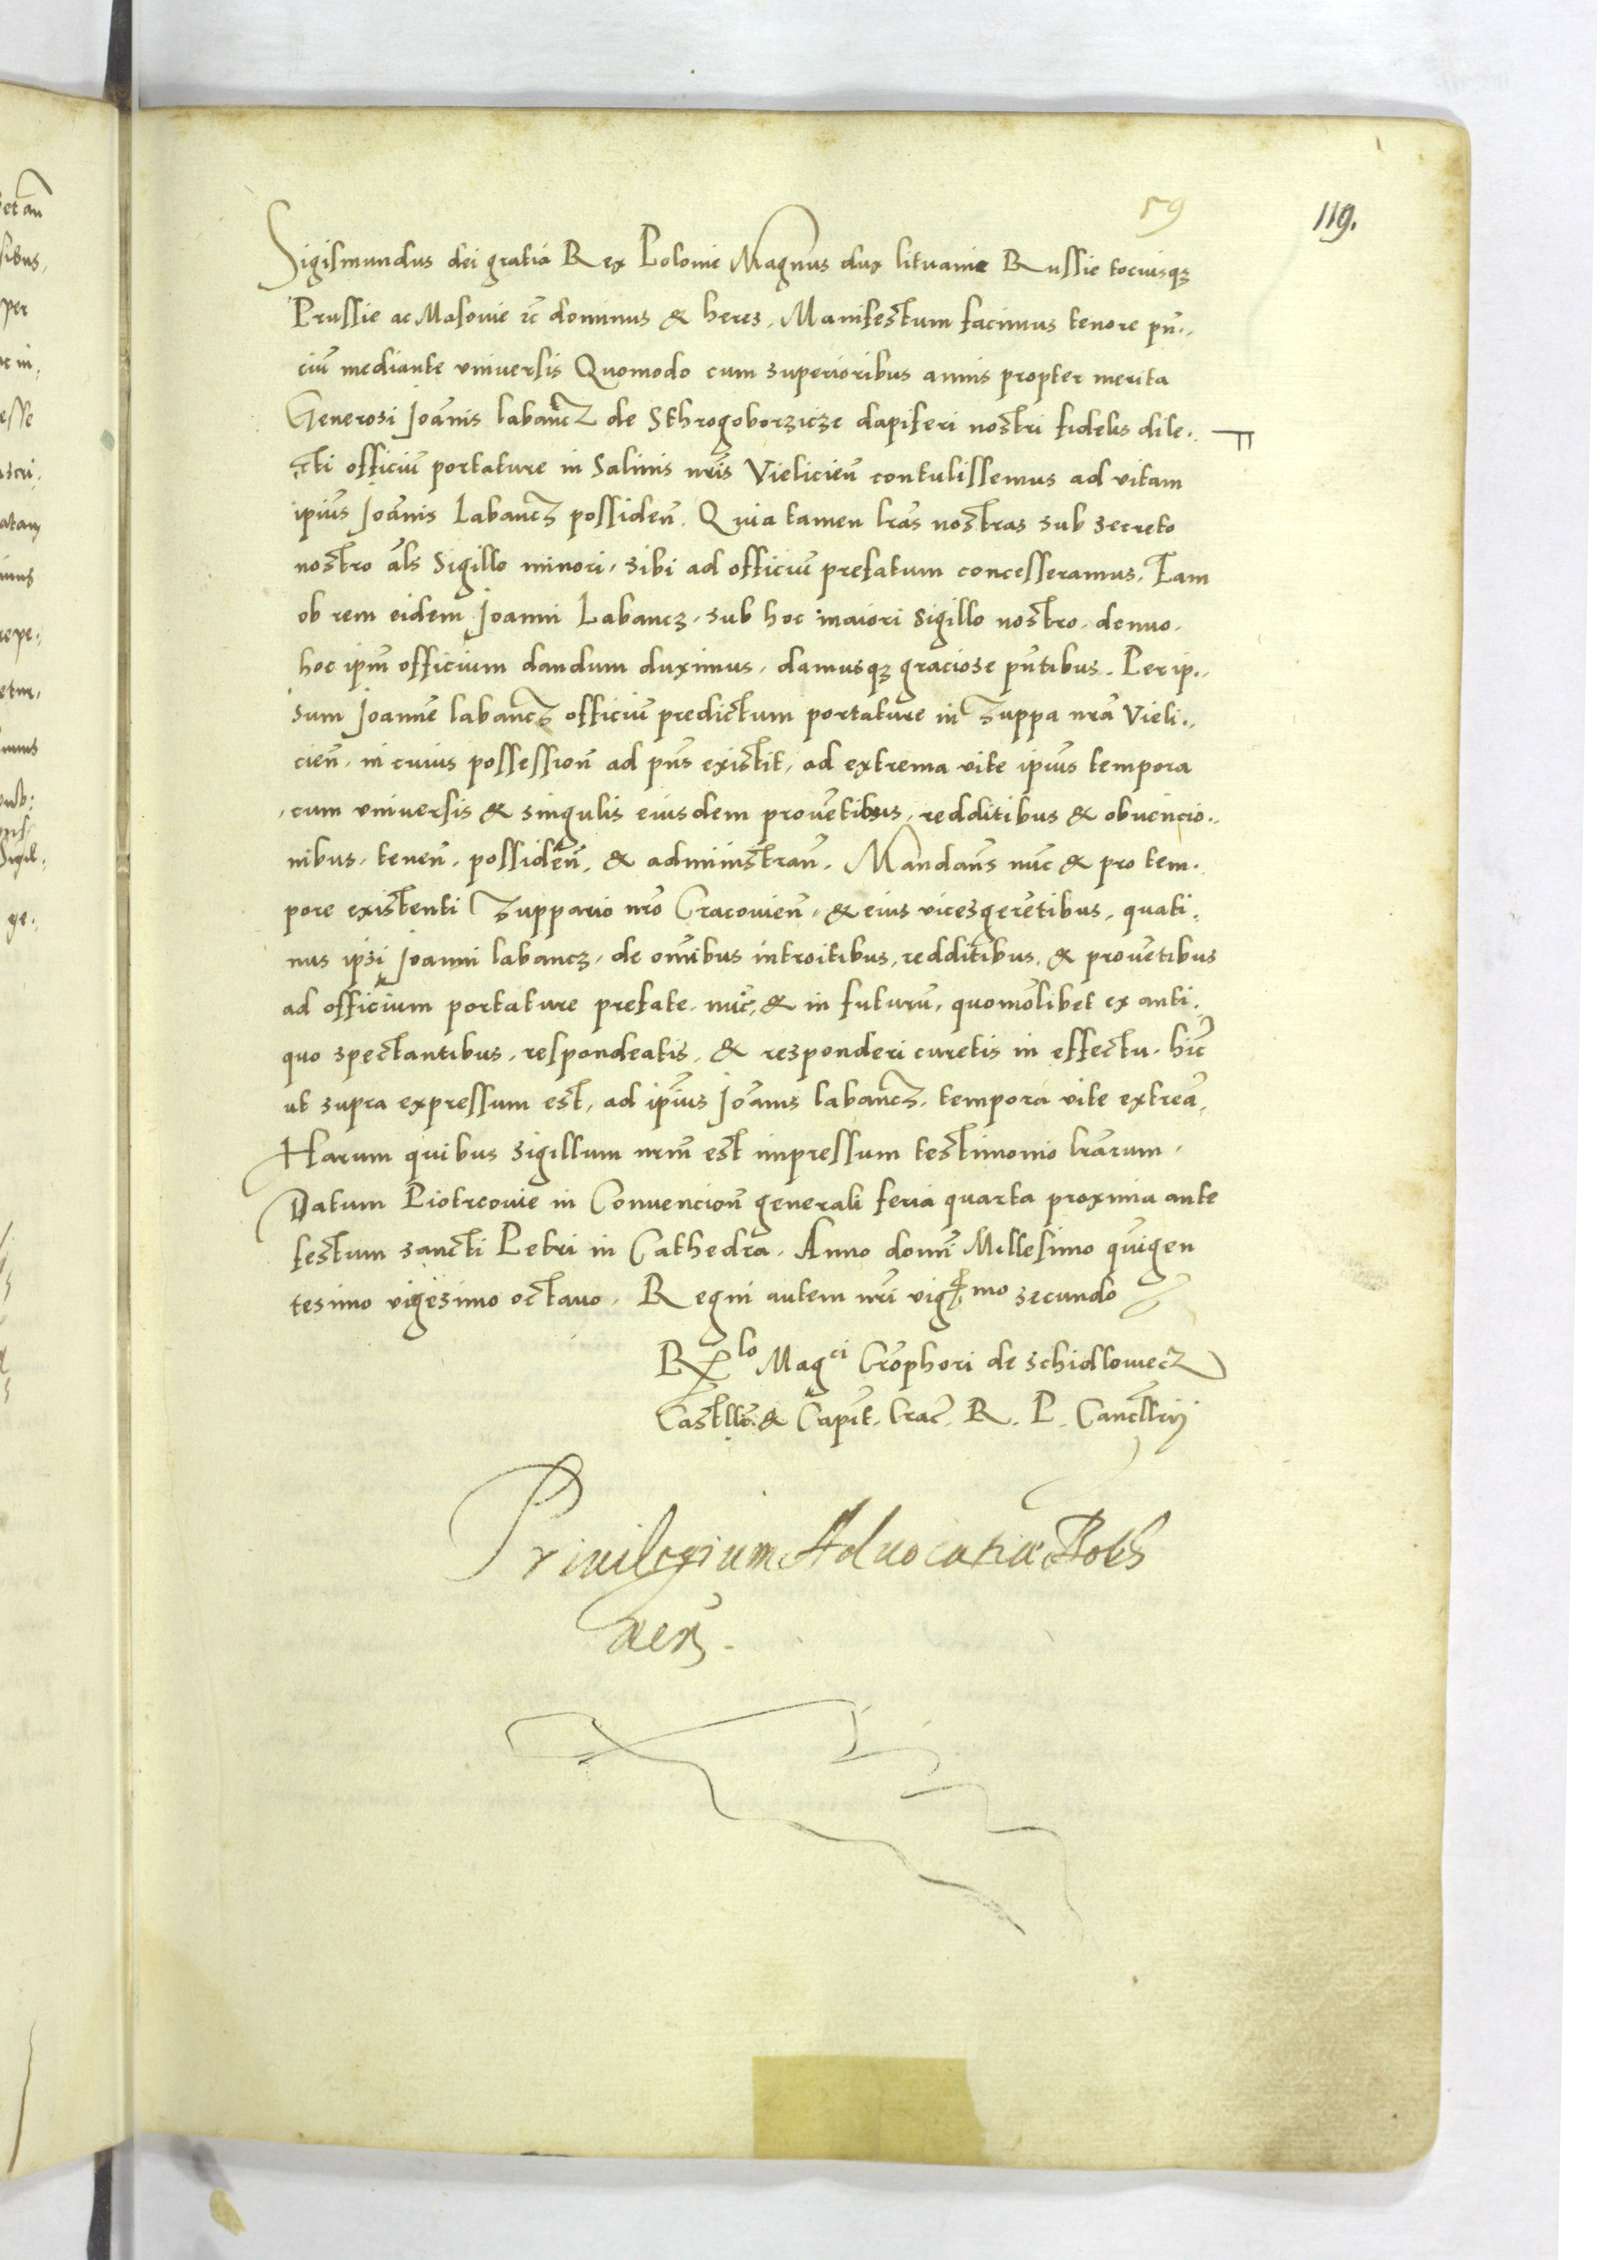 59
119.
Sigismundus dei gratia Rex Polonie Magnus dux lituanie Russie tociusqꝫ
Prussie ac Masovie ꝛc̃ dominus & heres, Manifestum facimus tenore pñ..
ciũ mediante universis Quomodo cum superioribus annis propter merita
Generosi Joãnis labancz de Sthrogoborzicze dapiferi nostri fidelis dile..
cti officiũ portature in Salinis nr̃is Vielicieñ contulissemus ad vitam
ipi͂us Joãnis Labancz possideñ. Quia tamen lr̃as nostras sub secreto
nostro al̃s Sigillo minori, sibi ad officiũ prefatum concesseramus. Eam
ob rem eidem Joanni Labancz, sub hoc maiori Sigillo nostro, denuo,
hoc ip̃m officium dandum duximus, damusqꝫ graciose pñtibus. Per ip..
sum Joannẽ labancz officiũ predictum portature in Zuppa nr̃a Vieli..
cieñ, in cuius possessioñ ad pñs existit, ad extrema vite ipi͂us tempora
cum universis & singulis eiusdem provẽtibus, redditibus & obvencio..
nibus, teneñ. possideñ. & administrañ. Mandañs nũc & pro tem..
pore existenti Zuppario nr̃o Cracovieñ, & eius vicesgerẽtibus, quati..
nus ipsi Joanni labancz, de omĩbus introitibus, redditibus, & provẽtibus
ad officium portature prefate, nũc, & in futurũ, quomõlibet ex anti..
quo spectantibus, respondeatis, & responderi curetis in effectu, hic̃
ut supra expressum est, ad ipi͂us Joãnis labancz, tempora vite extrea͂,
Harum quibus Sigillum nr̃m est impressum testimonio lr̃arum.
Datum Piotrcovie in Convencioñ generali feria quarta proxima ante
festum sancti Petri in Cathedra. Anno domĩ Millesimo quĩgen
tesimo vigesimo octavo. Regni autem nr̃i vigmo secundo
Rlo Magci Crõphori de Schidlowecz
Castllẽ. & Capit. Crac̃. R. P. Cancllrij
Privilegium Advocatiæ